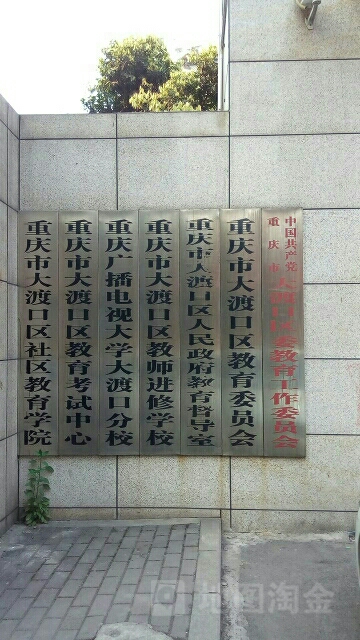 中国共产党
重庆市大渡口区委教育工作委员会
重庆市大渡口区教育委员会
重庆市大渡口区人民政府教育督导室
重庆市大渡口区教师进修学校
重庆广播电视大学大渡口分校
重庆市大渡口区教育考试中心
重庆市大渡口区社区教育学院
地图淘金